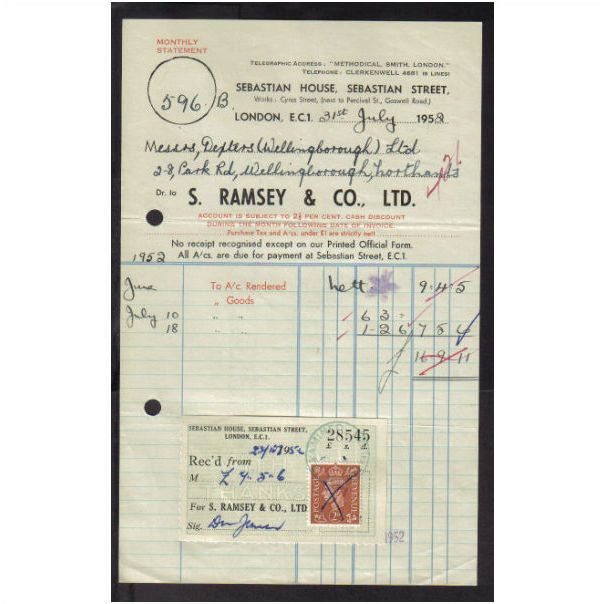 MONTHLY
STATEMENT
TELEGRAPHIC ADDRESS: "METHODICAL, SMITH, LONDON."
TELEPHONE: CLERKENWELL 4681 (6 LINES)
596 B.
SEBASTIAN HOUSE, SEBASTIAN STREET,
Works: Cyrus Street, (next to Percival St., Goswell Road.)
LONDON, E.C.1. 31st July 1952
Messrs, Depters (Wellingborough) Ltd
2-8, Park Rd, Wellingborough, Northants
Dr. to S. RAMSEY & CO., LTD.
ACCOUNT IS SUBJECT TO 2½ PER CENT. CASH DISCOUNT
DURING THE MONTH FOLLOWING DATE OF INVOICE.
Purchase Tax and A/cs. under £1 are strictly nett
No receipt recognised except on our Printed Official Form.
1952 All A/cs. are due for payment at Sebastian Street, E.C.1.
June To A/c. Rendered nett 9-4-5
July 10 " Goods 6 3 -
18 " " 1-2 6 7 5 6
16-9-11
SEBASTIAN HOUSE, SEBASTIAN STREET,
LONDON, E.C.1.
28545
£ s. d.
1952
Rec'd from
M £ 4-5-6
THANKS
For S. RAMSEY & CO., LTD
Sig.
POSTAGE REVENUE
1952